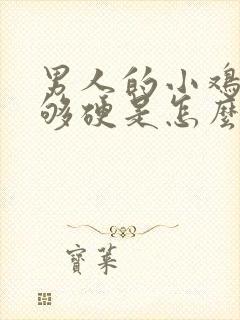 男人的小鸡
够硬是怎麼
寶萊